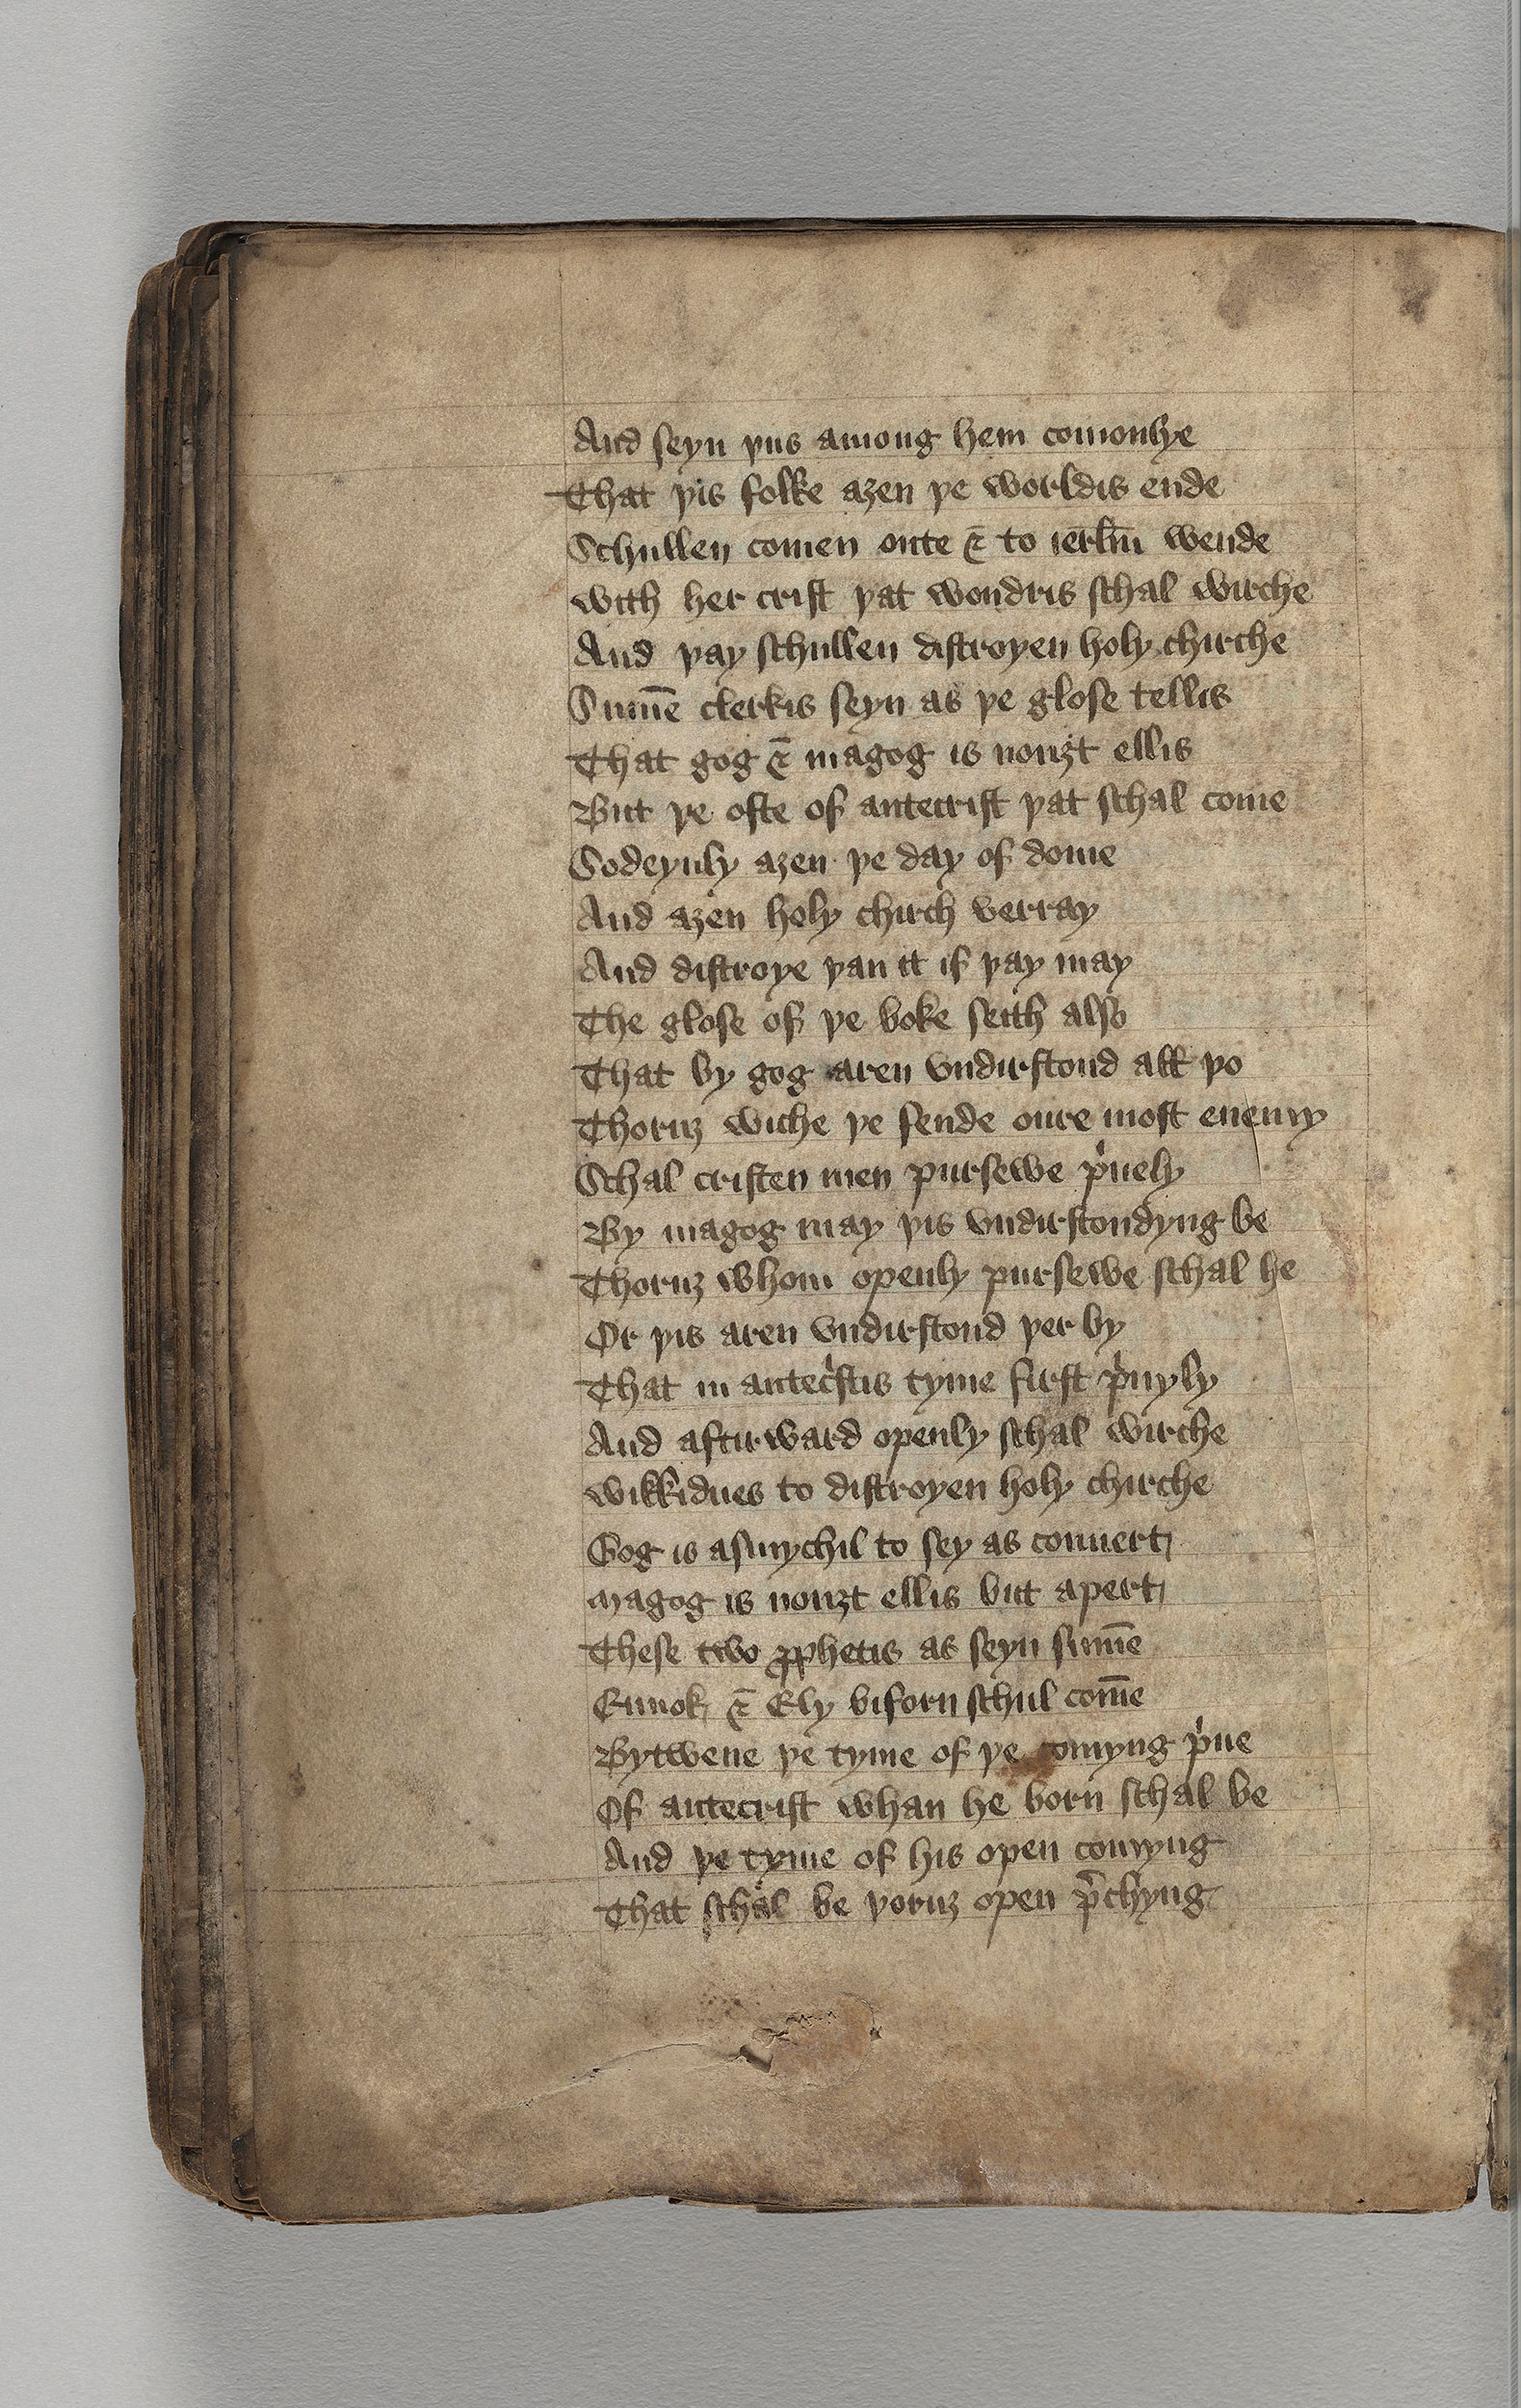 And seyn þus among hem comonlye
That þis folke aȝen þe worldis ende
Schullen comen oute ⁊ to ierl̄m wende
With her crist þat wondris schal wirche
And þay schullen distroyen holy chirche
Sum̄e clerkis seyn as þe glose tellis
That gog ⁊ magog is nouȝt ellis
But þe oste of antecrist þat schal come
Sodeynly aȝen þe day of dome
And aȝen holy chirch verray
And distroye þan it if þay may
The glose of þe boke seith also
That by gog aren vndirstond all þo
Thoruȝ wiche þe fende oure most enemy
Schal cristen men pursewe pͥuely
By magog may þis vndirstondyng be
Thoruȝ whom openly pursewe schal he
Or þis aren vndirstond þer by
That in antecͥstis tyme first pͥuyly
And aftirward openly schal wirche
Wikkidnes to distroyen holy chirche
Gog is asmychil to sey as couuert
Magog is nouȝt ellis but apert
These two ꝓphetis as seyn sum̄e
Ennok ⁊ Ely biforn schul com̄e
Bytwene þe tyme of þe comyng pͥue
Of antecrist whan he born schal be
And þe tyme of his open comyng
That schal be þoruȝ open p̄chyng